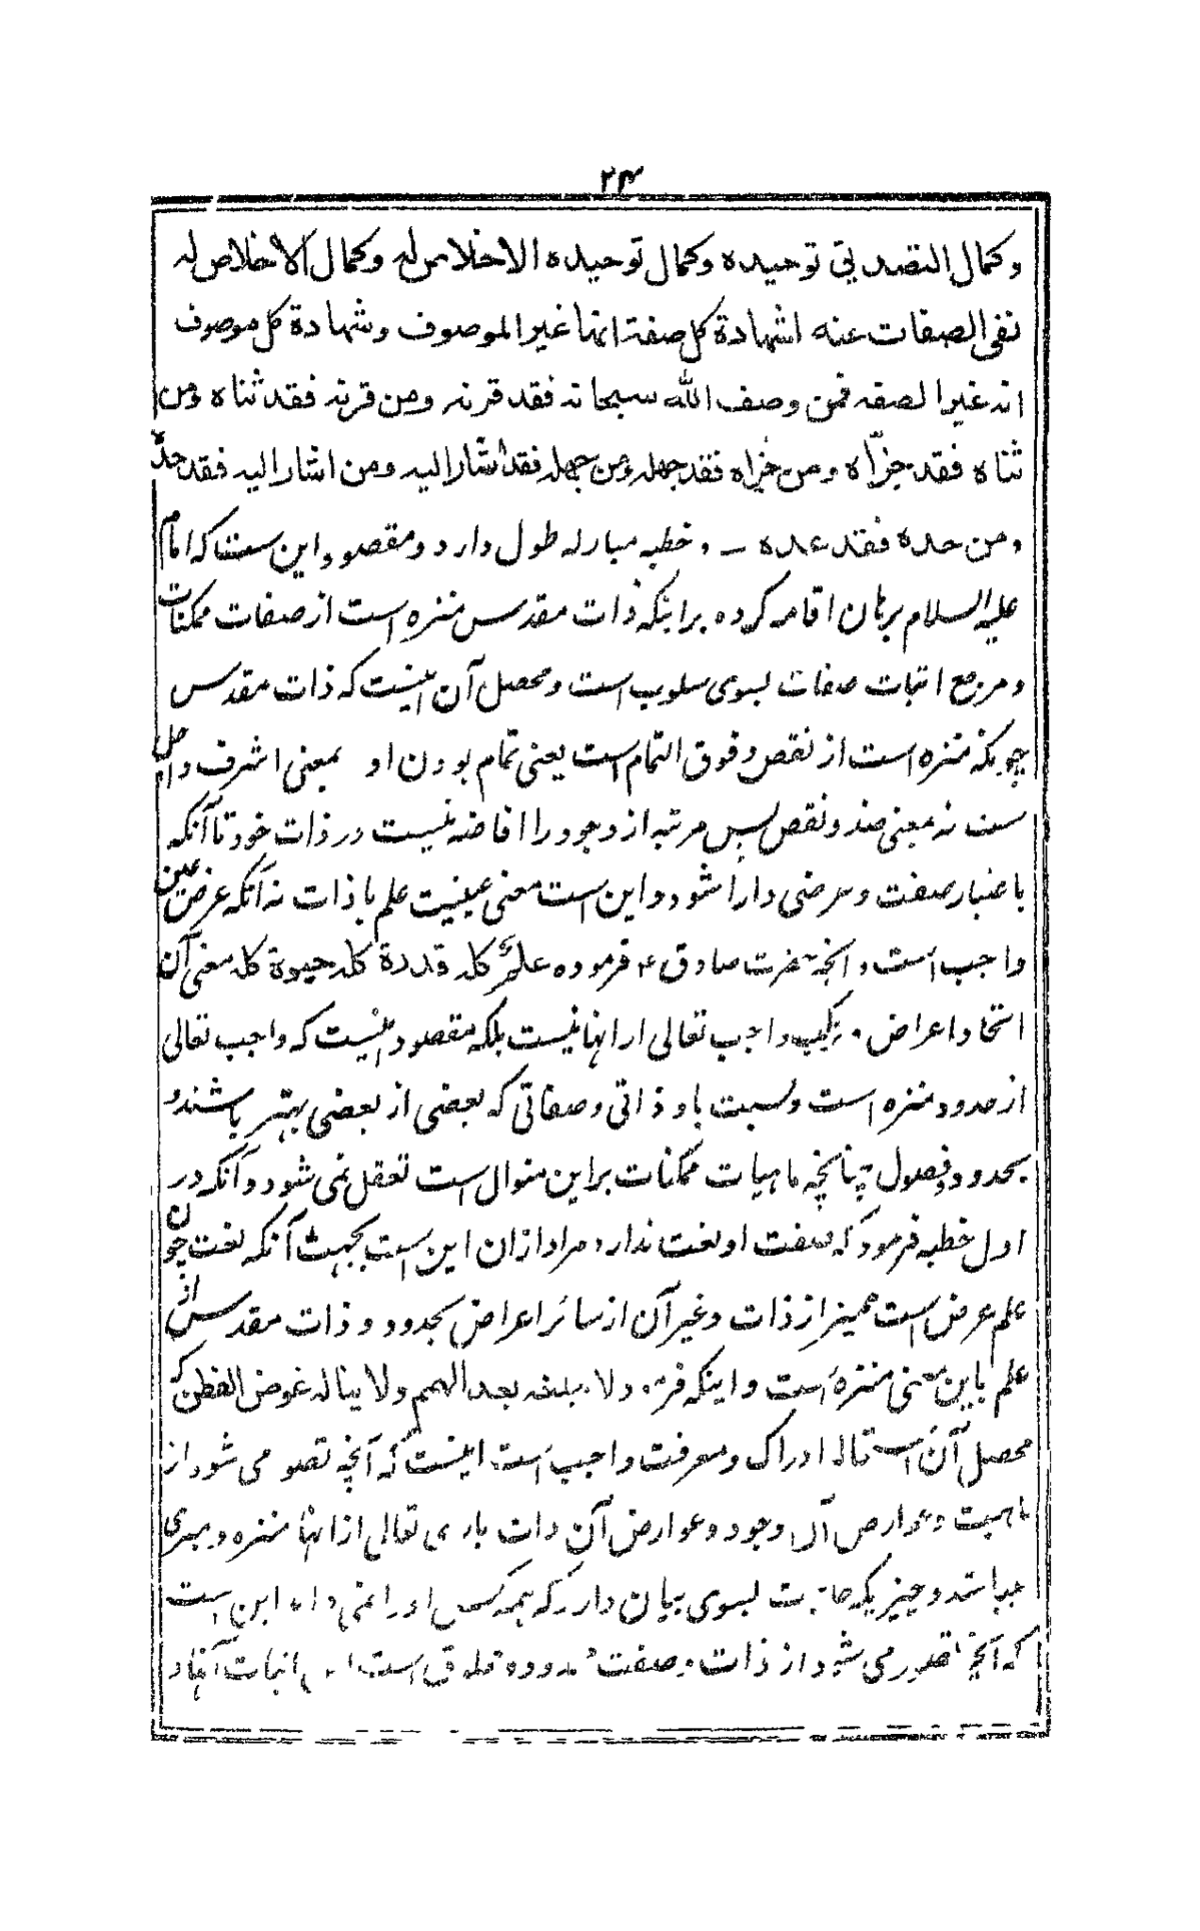 ۲۴
وکمال التصدیق توحیده وکمال توحیده الاخلاص له وکمال الاخلاص له
نفی الصفات عنه لشهادة کل صفة انها غیر الموصوف وشهادة کل موصوف
انه غیر الصفه فمن وصف الله سبحانه فقد قرنه ومن قرنه فقد ثناه ومن
ثناه فقد جزّاه ومن جزاه فقد جهله ومن جهله فقد اشار الیه ومن اشار الیه فقد حدّه
ومن حده فقد عده ــ و خطبه مبارکه طول دارد و مقصود این ست که امام
علیه السلام برهان اقامه کرده براینکه ذات مقدس منزه است از صفات ممکنات
و مرجع اثبات صفات بسوی سلوب است و محصل آن اینست که ذات مقدس
چونکه منزه است از نقص و فوق التمام است یعنی تمام بودن او بمعنی اشرف و اکمل
ست نه بمعنی ضد و نقص پس مرتبه از وجود را فاضه نیست در ذات خود تا آنکه
باعتبار صفت و عرضی دارا شود و این است معنی عینیت علم با ذات نه آنکه عرض عین
واجب است و آنچه حضرت صادق ع فرموده علم کله قدرة کله حیوة کله معنی آن
اتحاد اعراض و ترکیب واجب تعالی ازانها نیست بلکه مقصود اینست که واجب تعالی
از حدود منزه است و نسبت باو ذاتی و صفاتی که بعضی از بعضی بهتر باشند و
بحدود و فصول چنانچه ماهیات ممکنات براین منوال است تعقل نمی شود و آنکه در
اول خطبه فرمود که صفت او نعت ندارد مراد ازان این ست بجهت آنکه نعت چون
علم عرض است ممیز از ذات و غیر آن از سائر اعراض بحدود و ذات مقدس از
علم باین معنی منزه است و اینکه فرمود لا یبلغه بعد الهمم ولا یناله غوض الفطن که
محصل آن استحاله ادراک و معرفت واجب است اینست که آنچه تصور می شود از
ماهیت و عوارض آن وجود و عوارض آن ذات باری تعالی ازانها منزه و مبری
میباشد و چیزیکه بسوی بیان دارد که همه کس او را این است
که آنچه تصور می شود از ذات و صفت محدود مخلوق است اثبات آنها در